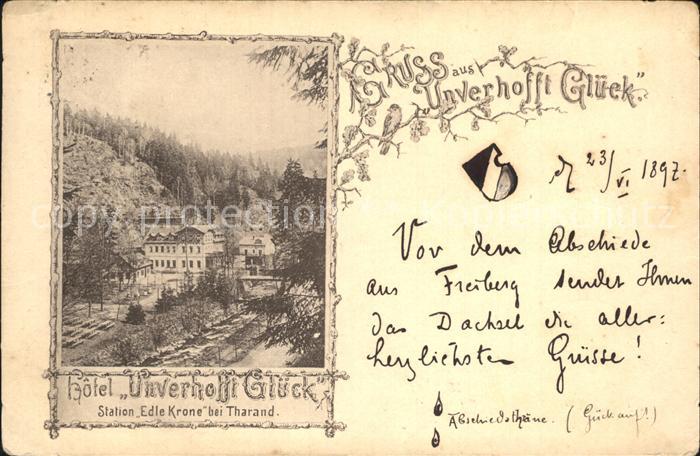 GRUSS aus
"Unverhofft Glück".
d 23/VI 1897.
Vor dem Abschiede
aus Freiberg sendet Ihnen
das Dachsel die aller:
herzlichsten Grüsse!
Abschiedsthräne. (Glück auf!)
Hôtel „Unverhofft Glück"
Station „Edle Krone" bei Tharand.
copy protection Kopierschutz